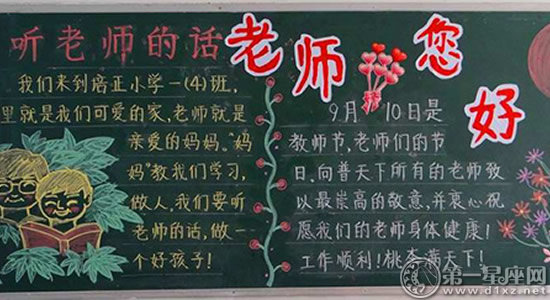 听老师的话
老师您好
我们来到培正小学一(4)班,
里就是我们可爱的家,老师就是
亲爱的妈妈。"妈
妈"教我们学习,
做人,我们要听
老师的话,做一
个好孩子!
9月 10日是
教师节,老师们的节
日,向普天下所有的老师致
以最崇高的敬意,并衷心祝
愿我们的老师身体健康!
工作顺利!桃李满天下!
第一星座网
www.d1xz.net